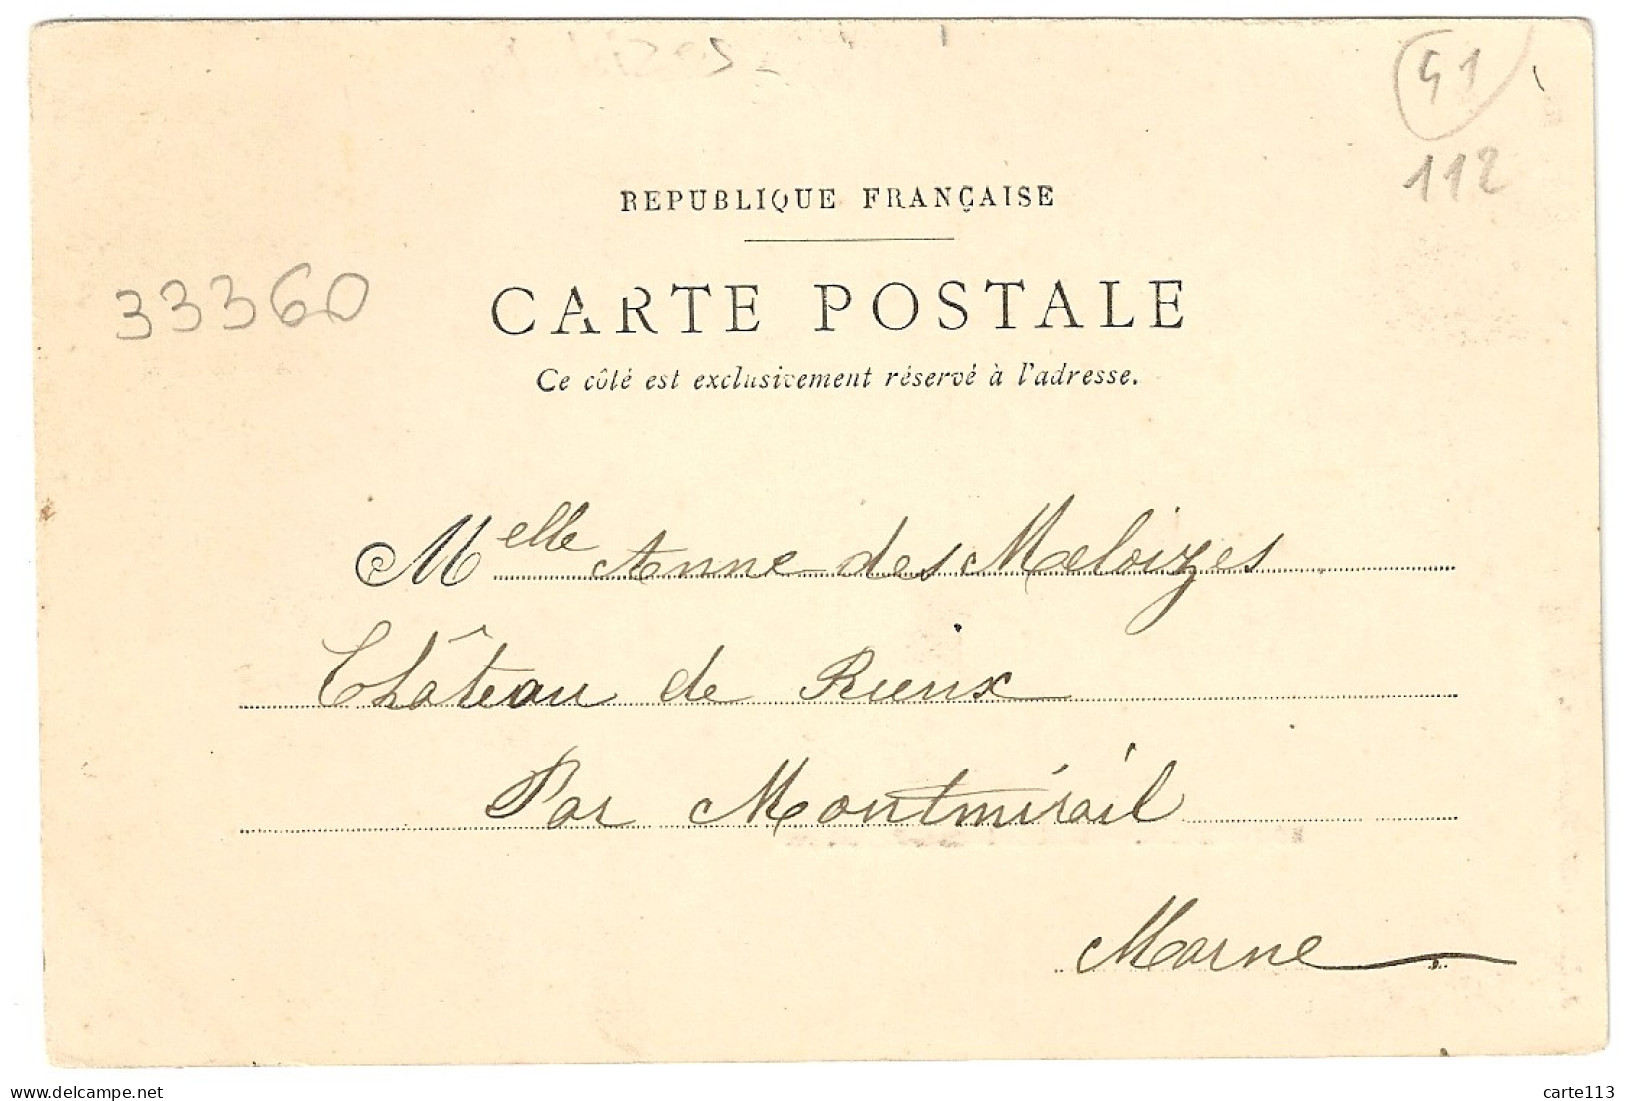 41
112
REPUBLIQUE FRANÇAISE
33360
CARTE POSTALE
Ce côté est exclusivement réservé à l'adresse.
Melle Anne des Meloizes
Château de Rieux
Par Montmirail
Marne
www.delcampe.net
carte113